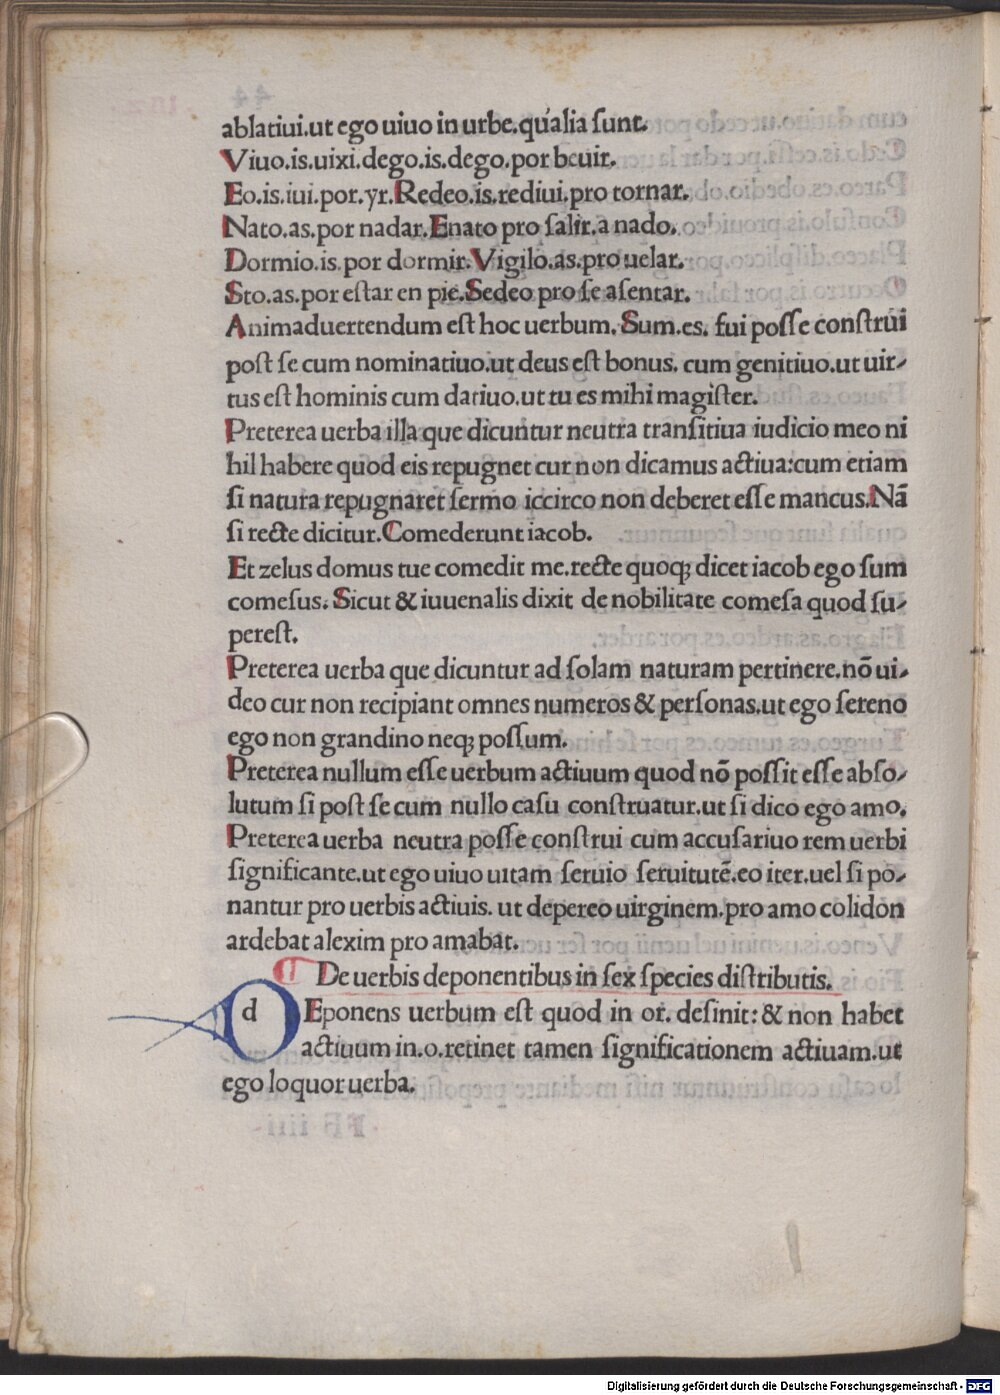 ablatiui.ut ego uiuo in urbe.qualia ſunt.
Viuo.is.uixi.dego.is.dego.por beuir.
Eo.is.iui.por.yr.Redeo.is.rediui.pro tornar.
Nato.as.por nadar.Enato pro ſalir.a nado.
Dormio.is.por dormir.Vigilo.as.pro uelar.
Sto.as.por eſtar en pie.Sedeo pro ſe aſentar.
Animaduertendum eſt hoc uerbum.Sum.es. fui poſſe conſtrui
poſt ſe cum nominatiuo.ut deus eſt bonus. cum genitiuo.ut uir-
tus eſt hominis cum datiuo.ut tu es mihi magiſter.
Preterea uerba illa que dicuntur neutra tranſitiua iudicio meo ni
hil habere quod eis repugnet cur non dicamus actiua:cum etiam
ſi natura repugnaret ſermo iccirco non deberet eſſe mancus.Nã
ſi recte dicitur.Comederunt iacob.
Et zelus domus tue comedit me.recte quoqꝫ dicet iacob ego ſum
comeſus. Sicut & iuuenalis dixit de nobilitate comeſa quod ſu-
pereſt.
Preterea uerba que dicuntur ad ſolam naturam pertinere.nõ ui-
deo cur non recipiant omnes numeros & perſonas.ut ego ſereno
ego non grandino neqꝫ poſſum.
Preterea nullum eſſe uerbum actiuum quod nõ poſſit eſſe abſo-
lutum ſi poſt ſe cum nullo caſu conſtruatur.ut ſi dico ego amo.
Preterea uerba neutra poſſe conſtrui cum accuſatiuo rem uerbi
ſignificante.ut ego uiuo uitam ſeruio ſeruitutẽ.eo iter.uel ſi po-
nantur pro uerbis actiuis. ut depereo uirginem.pro amo colidon
ardebat alexim pro amabat.
De uerbis deponentibus in ſex ſpecies diſtributis.
dEponens uerbum eſt quod in or. deſinit: & non habet
actiuum in.o.retinet tamen ſignificationem actiuam.ut
ego loquor uerba.
Digitalisierung gefördert durch die Deutsche Forschungsgemeinschaft - DFG